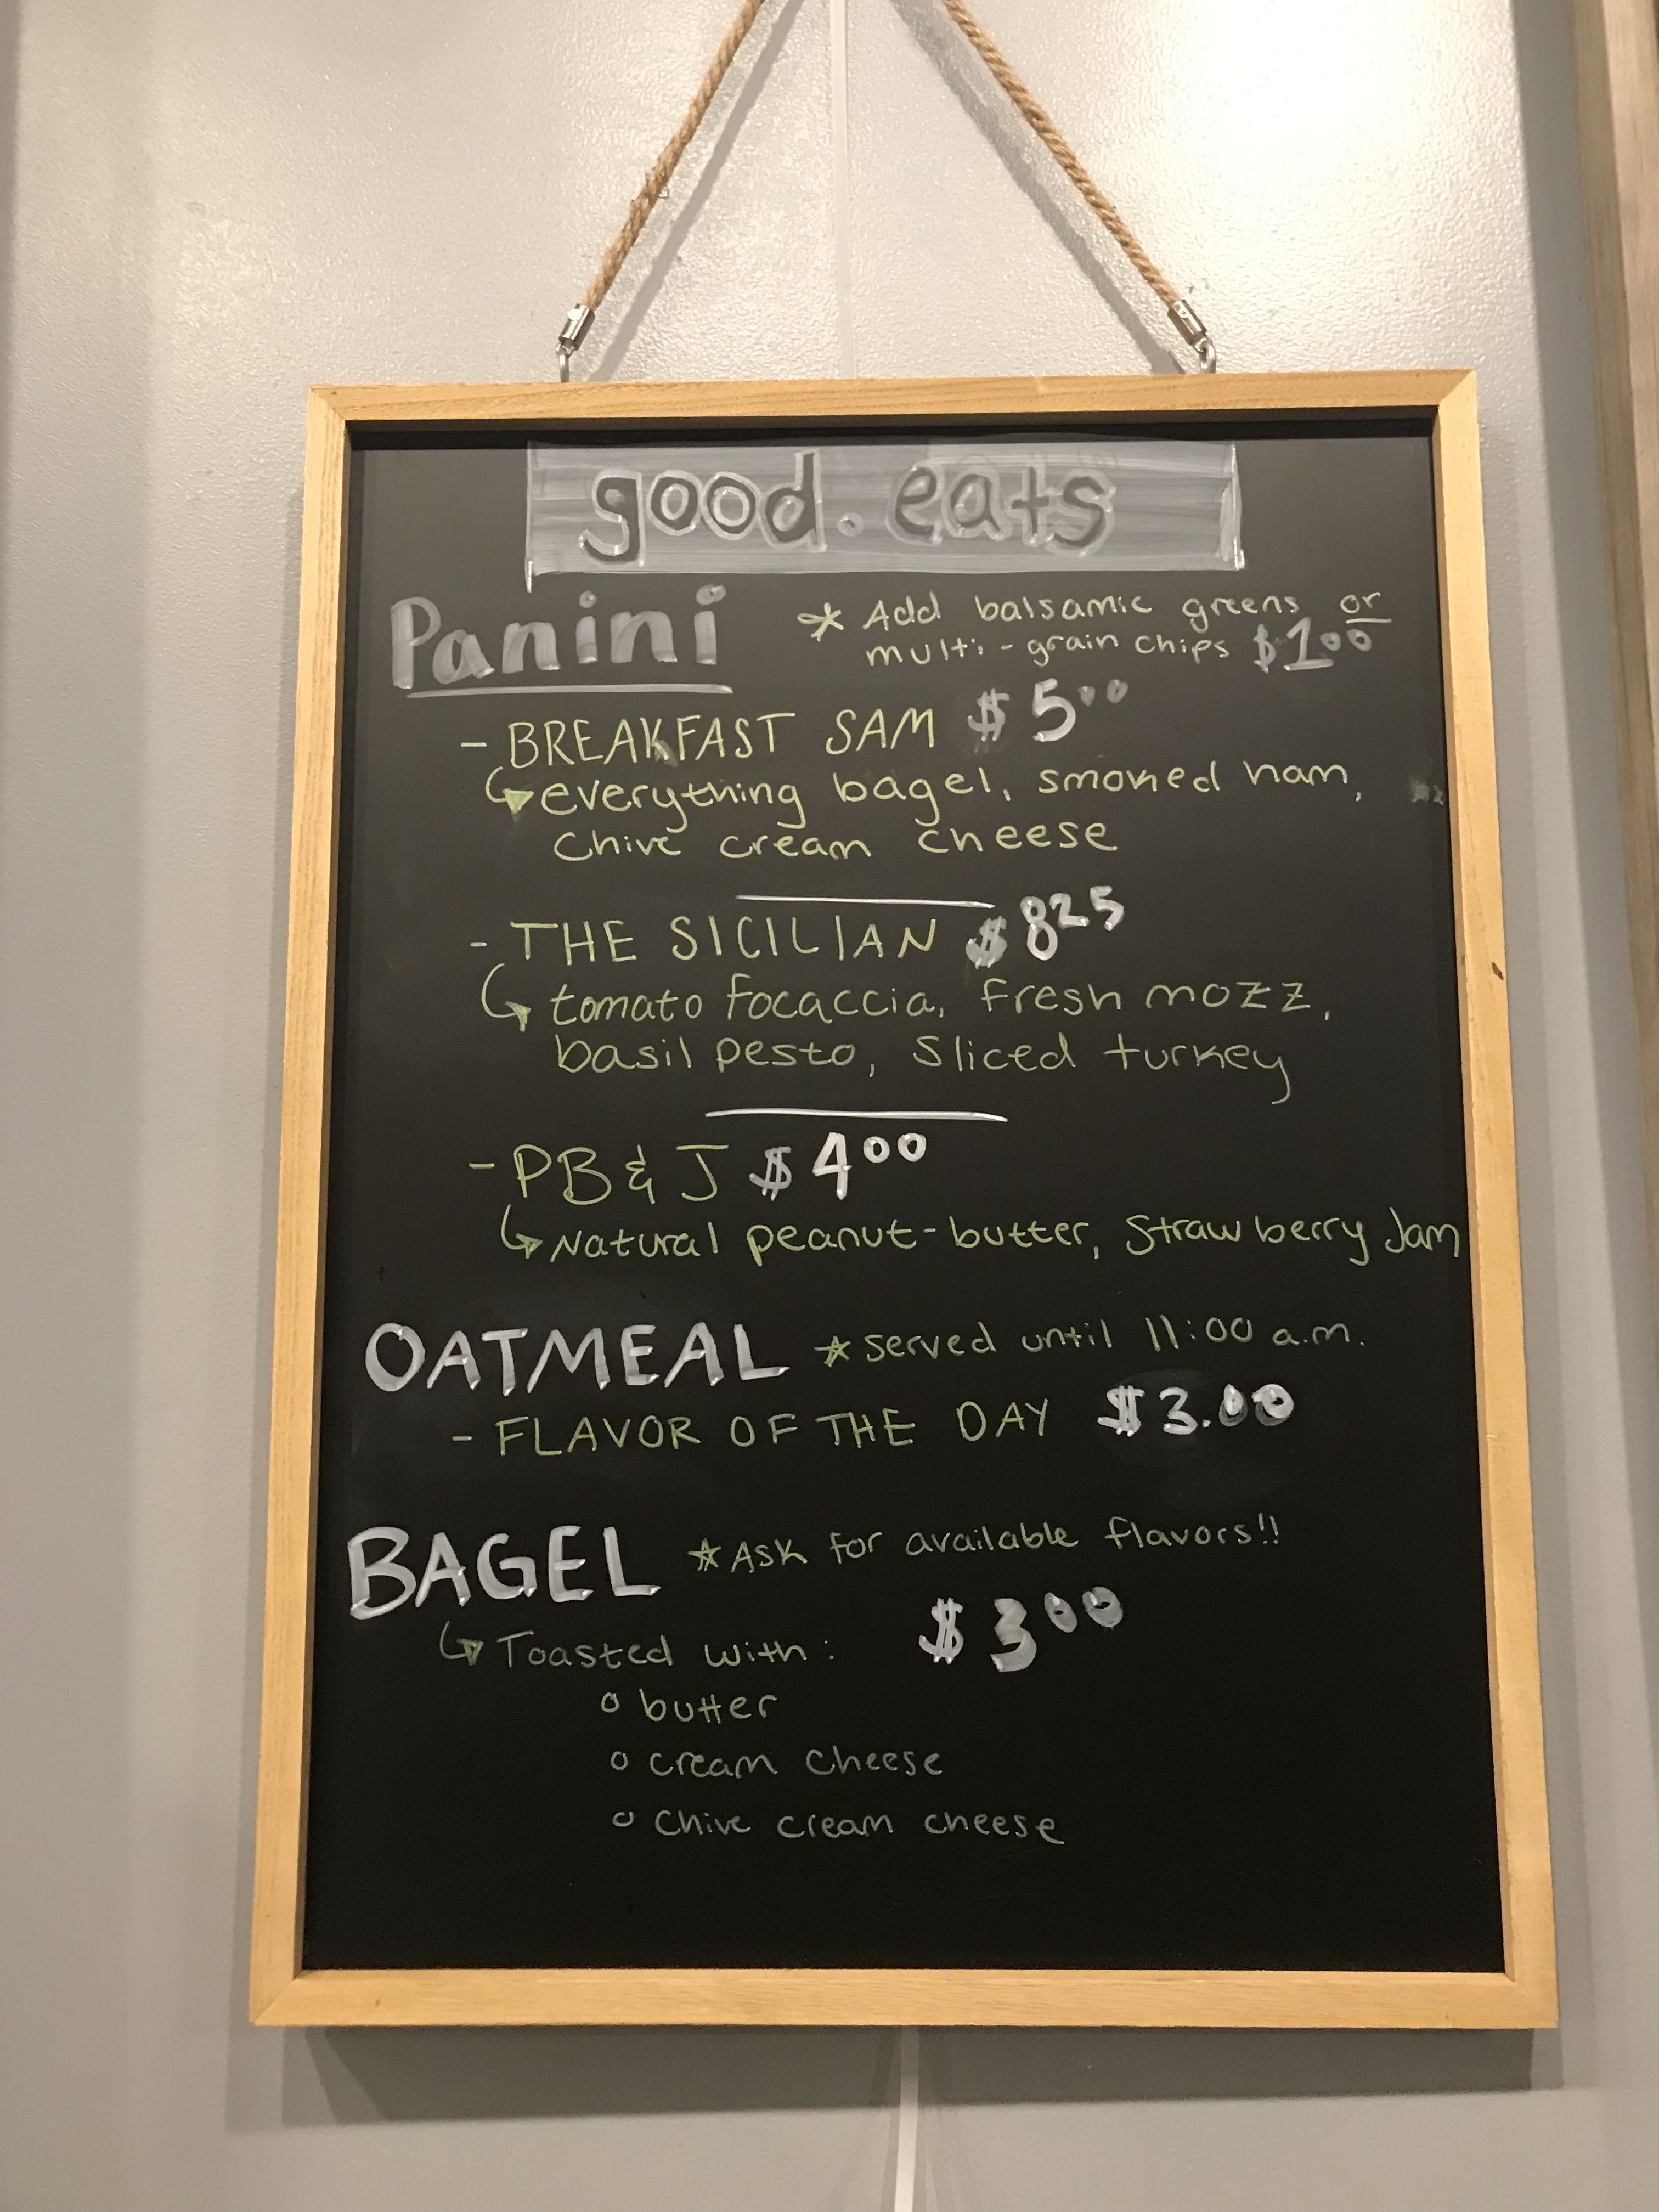 good.eats
Panini * Add balsamic greens or
multi-grain chips $1.00
- BREAKFAST SAM $5.00
everything bagel, smoked ham,
chive cream cheese
- THE SICILIAN $8.25
tomato focaccia, fresh mozz,
basil pesto, sliced turkey
- PB & J $4.00
Natural peanut-butter, Strawberry Jam
OATMEAL * served until 11:00 a.m.
- FLAVOR OF THE DAY $3.00
BAGEL * Ask for available flavors!!
Toasted with: $3.00
o butter
o cream cheese
o Chive cream cheese